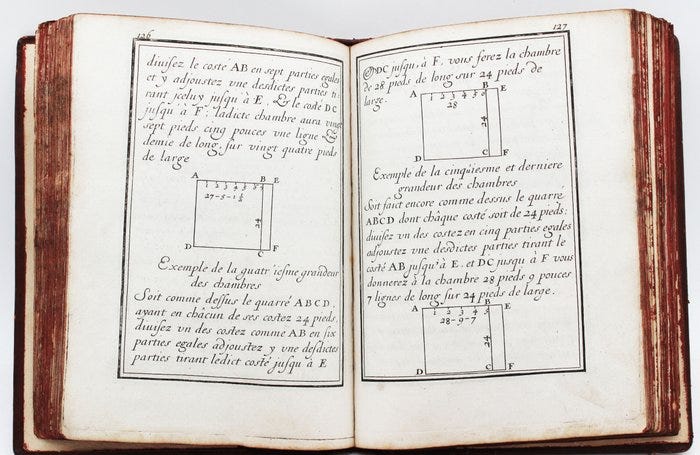 126
diuisez le coste AB en sept parties egales
et y adjoustez vne desdictes parties ti
rant jceluy jusqu'à E, & le coste DC
jusqu'à F; ladicte chambre aura vingt
sept pieds cinq pouces vne ligne &
demie de long, sur vingt quatre pieds
de large
A B E
1 2 3 4 5 6 7
27-5-1½
24
D C F
Exemple de la quatriesme grandeur
des chambres
Soit comme dessus le quarré ABCD,
ayant en châcun de ses costez 24 pieds,
diuisez vn des costez comme AB en six
parties egales adjoustez y vne desdictes
parties tirant ledict costé jusqu'a E
127
DC jusqu'à F, vous ferez la chambre
de 28 pieds de long sur 24 pieds de
large.
A B E
1 2 3 4 5 6
28
24
D C F
Exemple de la cinquiesme et derniere
grandeur des chambres
Soit faict encore comme dessus le quarré
ABCD dont châque costé soit de 24 pieds;
diuisez vn des costez en cinq parties egales
adjoustez vne desdictes parties tirant le
costé AB jusqu'à E, et DC jusqu'a F vous
donnerez à la chambre 28 pieds 9 pouces
7 lignes de long sur 24 pieds de large.
A B E
1 2 3 4 5
28-9-7
24
D C F